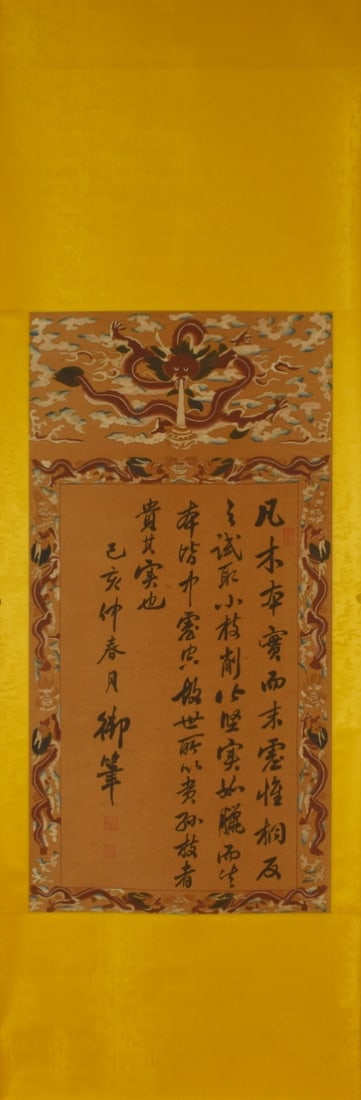 凡木本實而末虛惟桐反
之試取小枝削皆坚実如臘而其
本皆中虚空故世所以貴孫枝者
貴其実也
己亥仲春月
御筆